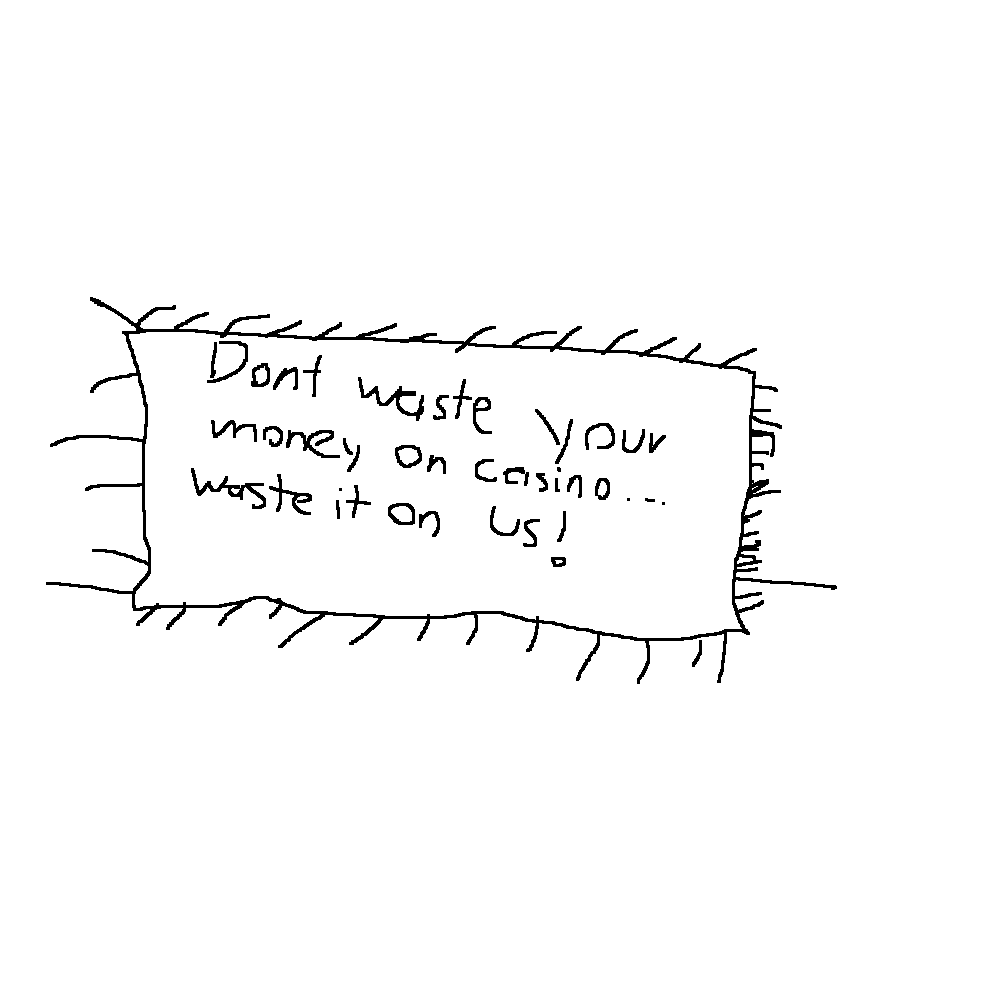 Dont waste your
money on casino...
waste it on us!